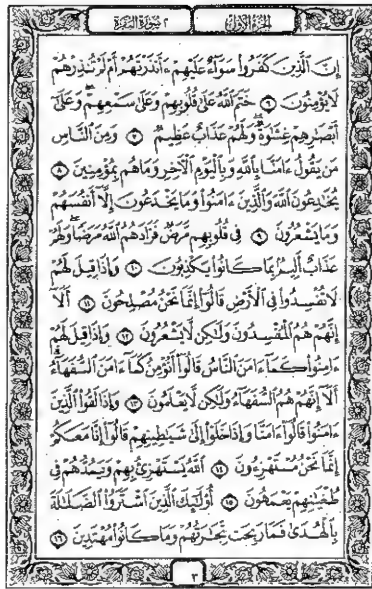 الجزء الأول
٢ سورة البقرة
إِنَّ ٱلَّذِينَ كَفَرُوا۟ سَوَآءٌ عَلَيْهِمْ ءَأَنذَرْتَهُمْ أَمْ لَمْ تُنذِرْهُمْ
لَا يُؤْمِنُونَ ٦ خَتَمَ ٱللَّهُ عَلَىٰ قُلُوبِهِمْ وَعَلَىٰ سَمْعِهِمْ وَعَلَىٰٓ
أَبْصَٰرِهِمْ غِشَٰوَةٌ وَلَهُمْ عَذَابٌ عَظِيمٌ ٧ وَمِنَ ٱلنَّاسِ
مَن يَقُولُ ءَامَنَّا بِٱللَّهِ وَبِٱلْيَوْمِ ٱلْءَاخِرِ وَمَا هُم بِمُؤْمِنِينَ ٨
يُخَٰدِعُونَ ٱللَّهَ وَٱلَّذِينَ ءَامَنُوا۟ وَمَا يَخْدَعُونَ إِلَّآ أَنفُسَهُمْ
وَمَا يَشْعُرُونَ ٩ فِى قُلُوبِهِم مَّرَضٌ فَزَادَهُمُ ٱللَّهُ مَرَضًا وَلَهُمْ
عَذَابٌ أَلِيمٌۢ بِمَا كَانُوا۟ يَكْذِبُونَ ١٠ وَإِذَا قِيلَ لَهُمْ
لَا تُفْسِدُوا۟ فِى ٱلْأَرْضِ قَالُوٓا۟ إِنَّمَا نَحْنُ مُصْلِحُونَ ١١ أَلَآ
إِنَّهُمْ هُمُ ٱلْمُفْسِدُونَ وَلَٰكِن لَّا يَشْعُرُونَ ١٢ وَإِذَا قِيلَ لَهُمْ
ءَامِنُوا۟ كَمَآ ءَامَنَ ٱلنَّاسُ قَالُوٓا۟ أَنُؤْمِنُ كَمَآ ءَامَنَ ٱلسُّفَهَآءُ
أَلَآ إِنَّهُمْ هُمُ ٱلسُّفَهَآءُ وَلَٰكِن لَّا يَعْلَمُونَ ١٣ وَإِذَا لَقُوا۟ ٱلَّذِينَ
ءَامَنُوا۟ قَالُوٓا۟ ءَامَنَّا وَإِذَا خَلَوْا۟ إِلَىٰ شَيَٰطِينِهِمْ قَالُوٓا۟ إِنَّا مَعَكُمْ
إِنَّمَا نَحْنُ مُسْتَهْزِءُونَ ١٤ ٱللَّهُ يَسْتَهْزِئُ بِهِمْ وَيَمُدُّهُمْ فِى
طُغْيَٰنِهِمْ يَعْمَهُونَ ١٥ أُو۟لَٰٓئِكَ ٱلَّذِينَ ٱشْتَرَوُا۟ ٱلضَّلَٰلَةَ
بِٱلْهُدَىٰ فَمَا رَبِحَت تِّجَٰرَتُهُمْ وَمَا كَانُوا۟ مُهْتَدِينَ ١٦
٣